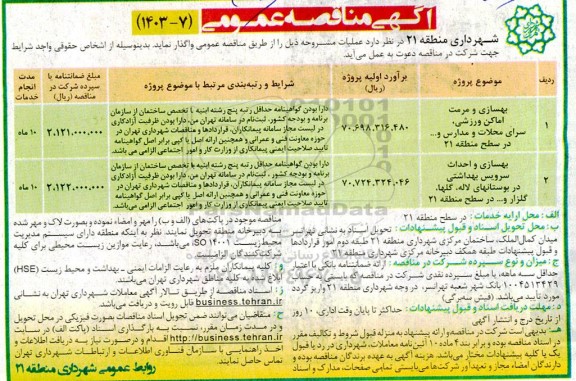 آگهی مناقصه عمومی (۷-۱۴۰۳)
شهرداری منطقه ۲۱ در نظر دارد عملیات مشروحه ذیل را از طریق مناقصه عمومی واگذار نماید. بدینوسیله از اشخاص حقوقی واجد شرایط
جهت شرکت در مناقصه دعوت به عمل می‌آید.
ردیف
موضوع پروژه
برآورد اولیه پروژه (ریال)
شرایط و رتبه‌بندی مرتبط با موضوع پروژه
مبلغ ضمانتنامه یا سپرده شرکت در مناقصه (ریال)
مدت انجام خدمات
۱
بهسازی و مرمت
اماکن ورزشی،
سرای محلات و مدارس و...
در سطح منطقه ۲۱
۷۰,۶۹۸,۳۱۶,۴۸۰
دارا بودن گواهینامه حداقل رتبه پنج رشته ابنیه با تخصص ساختمان از سازمان
برنامه و بودجه کشور، ثبت‌نام در سامانه تهران من، دارا بودن ظرفیت آزادکاری
در لیست مجاز سامانه پیمانکاران، قراردادها و مناقصات شهرداری تهران در
حوزه معاونت فنی و عمرانی و همچنین ارائه اصل یا کپی برابر اصل گواهینامه
تایید صلاحیت ایمنی پیمانکاری از وزارت کار و امور اجتماعی الزامی می باشد.
۲,۱۲۱,۰۰۰,۰۰۰
۱۰ ماه
۲
بهسازی و احداث
سرویس بهداشتی
در بوستانهای لاله، گلها،
گلزار و... در سطح منطقه ۲۱
۷۰,۷۲۴,۳۲۴,۰۴۶
دارا بودن گواهینامه حداقل رتبه پنج رشته ابنیه با تخصص ساختمان از سازمان
برنامه و بودجه کشور، ثبت‌نام در سامانه تهران من، دارا بودن ظرفیت آزادکاری
در لیست مجاز سامانه پیمانکاران، قراردادها و مناقصات شهرداری تهران در
حوزه معاونت فنی و عمرانی و همچنین ارائه اصل یا کپی برابر اصل گواهینامه
تایید صلاحیت ایمنی پیمانکاری از وزارت کار و امور اجتماعی الزامی می باشد.
۲,۱۲۲,۰۰۰,۰۰۰
۱۰ ماه
الف: محل ارایه خدمات: در سطح منطقه ۲۱
ب: محل تحویل اسناد و قبول پیشنهادات: تحویل اسناد به نشانی تهرانسر
میدان کمال‌الملک، ساختمان مرکزی شهرداری منطقه ۲۱ طبقه دوم امور قراردادها
و قبول پیشنهادات طبقه همکف دبیرخانه مرکزی شهرداری منطقه ۲۱
ج: میزان و نوع سپرده شرکت در مناقصه: ارائه ضمانتنامه بانکی با اعتبار
حداقل سه ماهه، یا مبلغ سپرده نقدی شرکت در مناقصه که بایستی به حساب
۱۰۰۴۵۱۲۴۲۹ بانک شهر شعبه تهرانسر، در وجه شهرداری منطقه ۲۱ واریز گردد
مورد تایید می‌باشد. (فیش سه‌برگی)
د: مهلت دریافت اسناد و قبول پیشنهادات: حداکثر تا پایان وقت اداری ۱۰ روز
از تاریخ درج و انتشار آگهی
هـ: بدیهی است شرکت در مناقصه و ارائه پیشنهاد به منزله قبول شروط و تکالیف مقرر
در اسناد مناقصه بوده و برابر بند۴ ماده ۱۰ آئین‌نامه معاملات، شهرداری در رد یا قبول
یک یا کلیه پیشنهادات مختار می‌باشد. هزینه آگهی به عهده برندگان مناقصه بوده و
دارندگان امضاء مجاز و تعهدآور شرکت‌ها می‌بایستی تمامی صفحات، مدارک و اسناد
مناقصه موجود در پاکت‌های (الف و ب) را مهر و امضاء نموده و بصورت لاک و مهر شده
به دبیرخانه منطقه تحویل نمایند. نظر به اینکه منطقه دارای سیستم مدیریت
محیط زیست ISO ۱۴۰۰۱ می‌باشد، رعایت موازین زیست محیطی برای کلیه
شرکت‌کنندگان الزامیست.
و: کلیه پیمانکاران ملزم به رعایت الزامات ایمنی ـ بهداشت و محیط زیست (HSE)
ابلاغ شده به کلیه مناطق شهرداری تهران می‌باشند.
ز: اسناد مناقصه از طریق تالار آگهی معاملات شهرداری تهران به نشانی
business.tehran.ir قابل رویت و دریافت می‌باشد.
ح: متقاضیان می‌توانند ضمن تحویل اسناد مناقصات بصورت فیزیکی در محل تحویل
و در مدت زمان مقرر، نسبت به بارگذاری اسناد (پاکت الف) در سایت
http://business.tehran.ir اقدام و درصورت نیاز به دریافت اطلاعات و
اخذ راهنمایی با سازمان فناوری اطلاعات و ارتباطات شهرداری تهران
تماس حاصل نمایند.
روابط عمومی شهرداری منطقه ۲۱